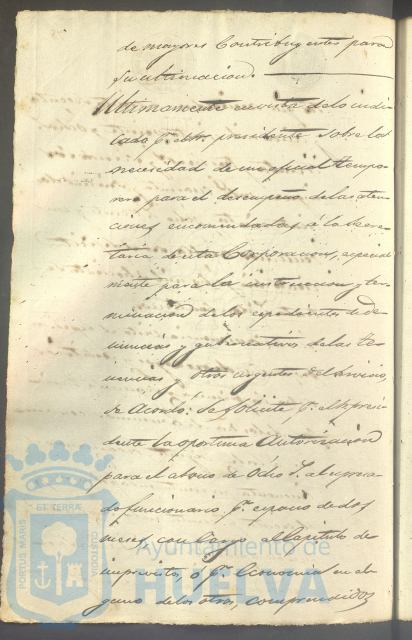 de mayores Contribuyentes para
su ultimacion.
Ultimamente en vista de lo indi
cado pr. el Sr. presidente sobre la
necesidad de un oficial tempo
rero para el desempeño de las aten
ciones encomendadas á la Secre
taria de esta Corporacion, especial
mente para la instruccion y ter
minacion de los expedientes de de
nuncias y gubernativos de las
y otros urgentes del Servicio,
se Acordó: Se solicite pr. el Sr. presi
dente la oportuna Autorizacion
para el abono de Ocho al expresa
do funcionario pr. espacio de dos
meses, con Cargo al Capitulo de
imprevistos, ó pr. Economia en al
guno de los otros, comprendidos
PORTUS MARIS
ET TERRÆ
CUSTODIA
Ayuntamiento de
HUELVA